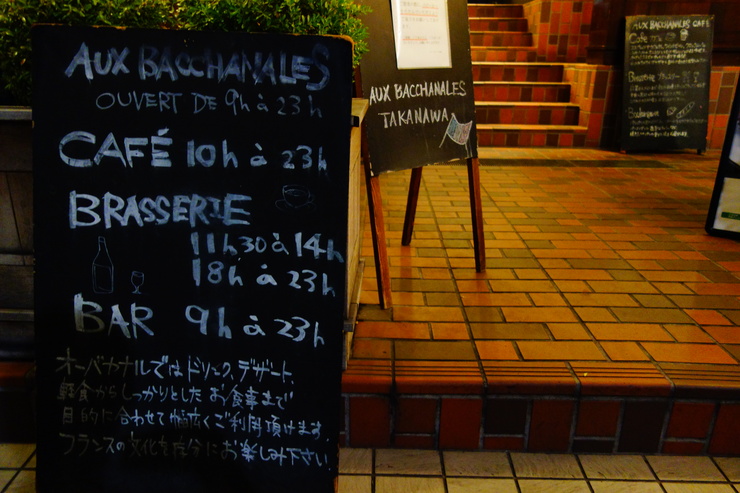 AUX BACCHANALES
OUVERT DE 9h à 23h
CAFÉ 10h à 23h
BRASSERIE
11h30 à 14h
18h à 23h
BAR 9h à 23h
オーバカナルではドリンク、デザート、
軽食からしっかりとしたお食事まで
目的に合わせて幅広くご利用頂けます。
フランスの文化を充分にお楽しみ下さい
AUX BACCHANALES
TAKANAWA
AUX BACCHANALES CAFE
Cafe
Brasserie
Boulangerie